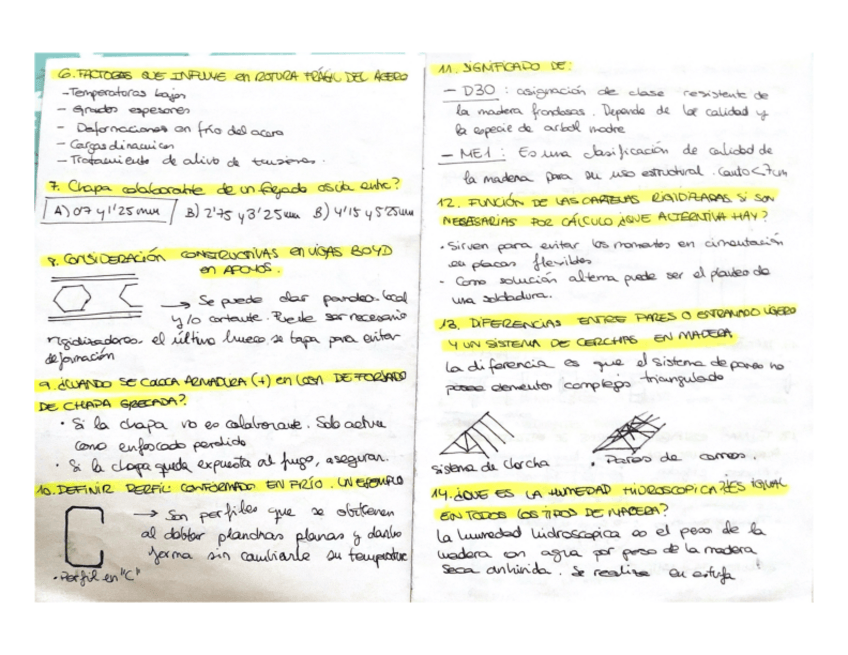 6. FACTORES QUE INFLUYE en ROTURA FRÁGIL DEL ACERO
- Temperaturas bajas
- Grandes espesores
- Deformaciones en frío del acero
- Cargas dinamicas
- Tratamiento de alivio de tensiones.
7. Chapa colaborante de un forjado oscila entre?
A) 0'7 y 1'25 mm B) 2'75 y 3'25 mm B) 4'15 y 5'25 mm
8. CONSIDERACIÓN CONSTRUCTIVAS en VIGAS BOYD
en APOYOS.
→ Se puede dar pandeo local
y/o cortante. Puede ser necesario
rigidizadores. el último hueco se tapa para evitar
deformación
9. ¿CUANDO SE COLOCA ARMADURA (+) en LOSA DE FORJADO
DE CHAPA GRECADA?
• Si la chapa no es colaborante. Solo actua
como encofrado perdido
• Si la chapa queda expuesta al fuego, aseguran.
10. DEFINIR PERFIL CONFORMADO EN FRÍO. UN EJEMPLO
→ Son perfiles que se obtienen
al doblar planchas planas y darles
forma sin cambiarle su temperatura
• Perfil en "C"
11. SIGNIFICADO DE:
- D30 : asignación de clase resistente de
la madera frondosas. Depende de la calidad y
la especie de arbol madre
- ME1 : Es una clasificación de calidad de
la madera para su uso estructural. Canto < 7cm
12. FUNCIÓN DE LAS CARTELAS RIGIDIZARAS SI SON
NECESARIAS POR CÁLCULO ¿QUE ALTERNATIVA HAY?
• Sirven para evitar los momentos en cimentación
en placas flexibles
• Como solución alterna puede ser el de
una soldadura.
13. DIFERENCIAS ENTRE PARES O ENTRAMADO LIGERO
Y UN SISTEMA DE CERCHAS EN MADERA
La diferencia es que el sistema de pares no
elemento complejo triangulado
Sistema de Cercha
• Pares de correas.
14. ¿QUE ES LA HUMEDAD HIDROSCOPICA? ¿ES IGUAL
EN TODOS LOS TIPOS DE MADERA?
La humedad hidroscopica es el peso de la
madera en agua por peso de la madera
seca anhidrida. Se realiza en estufa